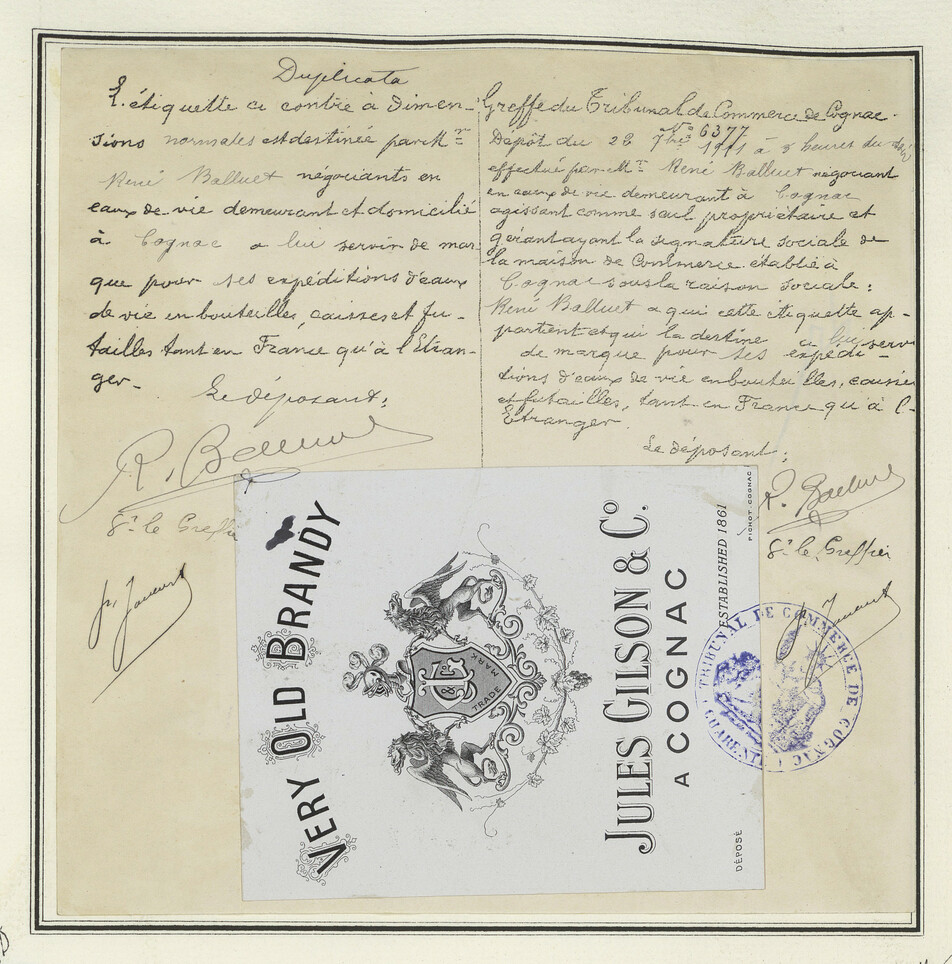 Duplicata
L'étiquette ci contre à dimen-
sions normales est destinée par Mr
René Balluet négociants en
eaux de vie demeurant et domicilié
à Cognac a lui servir de mar
que pour ses expéditions d'eaux
de vie en bouteilles, caisses et fu-
tailles tant en France qu'à l'Etran-
ger-
Le déposant:
R. Balluet
Pr le Greffier
Greffe du Tribunal de Commerce de Cognac.
No 6377
Dépôt du 28 7bre 1911 à 3 heures du soir
effectué par Mr René Balluet négociant
en eaux de vie demeurant à Cognac
agissant comme seul propriétaire et
gérant ayant la signature sociale de
la maison de Commerce établie à
Cognac sous la raison sociale:
René Balluet a qui cette étiquette ap-
partient et qui la destine a lui servir
de marque pour ses expédi-
tions d'eaux de vie en bouteilles, caisses
et futailles, tant en France qu'à l'-
Etranger.
Le déposant:
R. Balluet
Pr le Greffier
VERY OLD BRANDY
J G & Co
TRADE MARK
JULES GILSON & Co.
A COGNAC
ESTABLISHED 1861
PICHOT-COGNAC
DÉPOSÉ
TRIBUNAL DE COMMERCE DE COGNAC